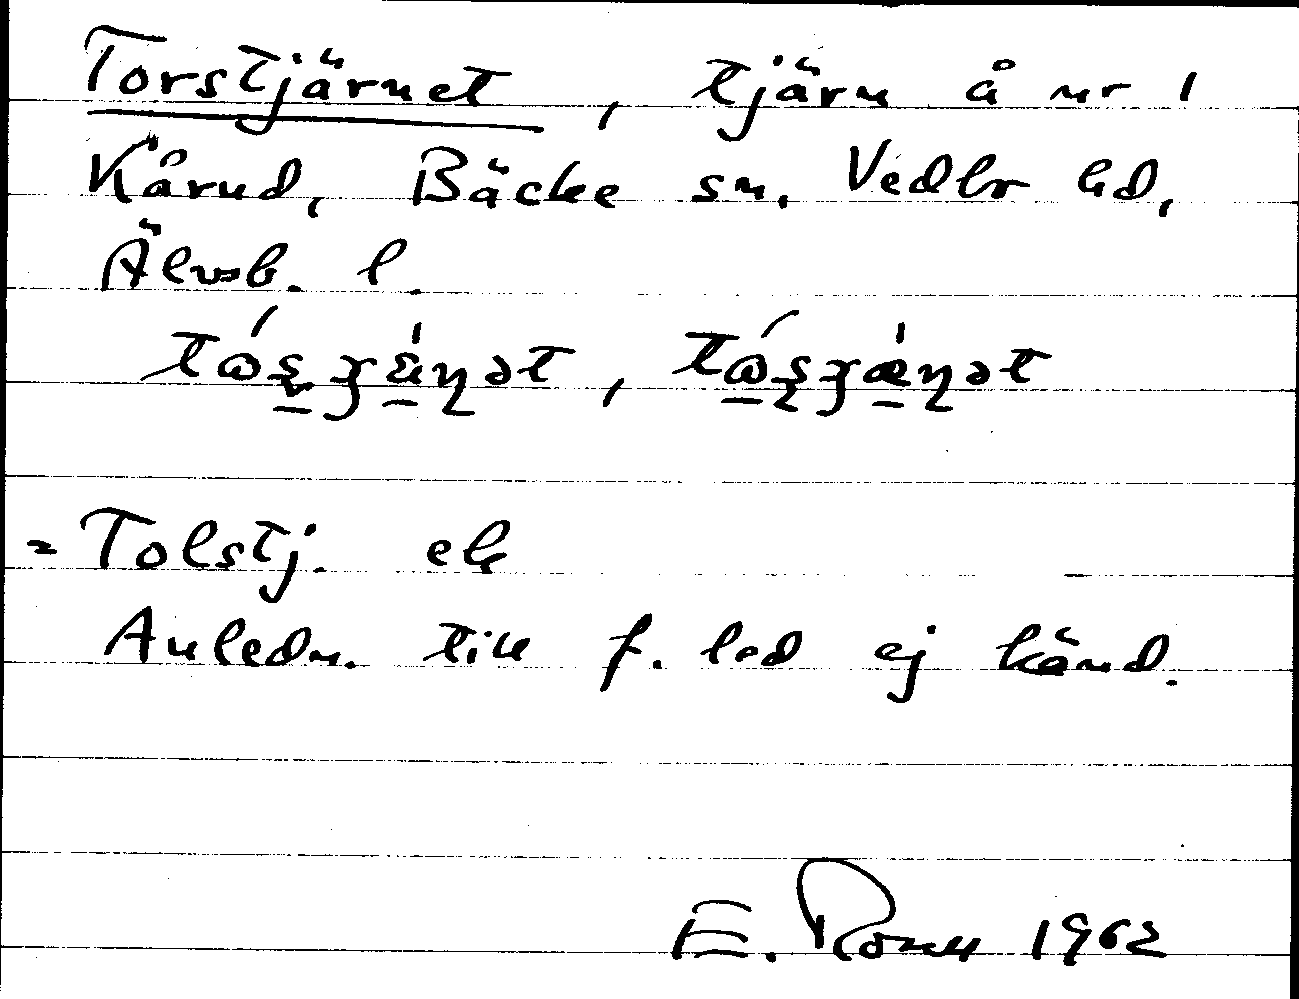 Torstjärnet, tjärn å nr 1
Kårud, Bäcke sn. Vedbo hd,
Älvsb. l.
tɷ́ʂʒæ̀ɳət, tɷ́ʂʒæ̀ɳət
= Tolstj. ek
Anledn. till f. led ej känd.
E. 1962